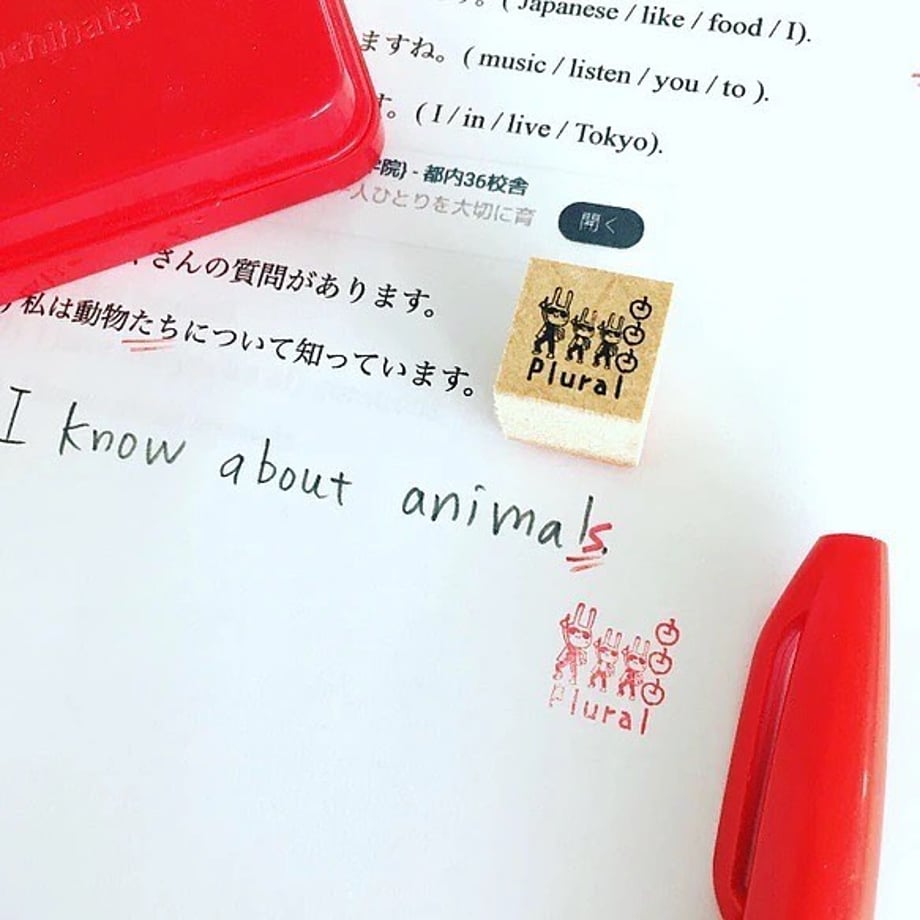 achihata
。( Japanese / like / food / I).
ますね。( music / listen / you / to ).
す。( I / in / live / Tokyo).
学院} - 都内36校舎
一人ひとりを大切に育
開く
さんの質問があります。
私は動物たちについて知っています。
Plural
I know about animals.
Plural